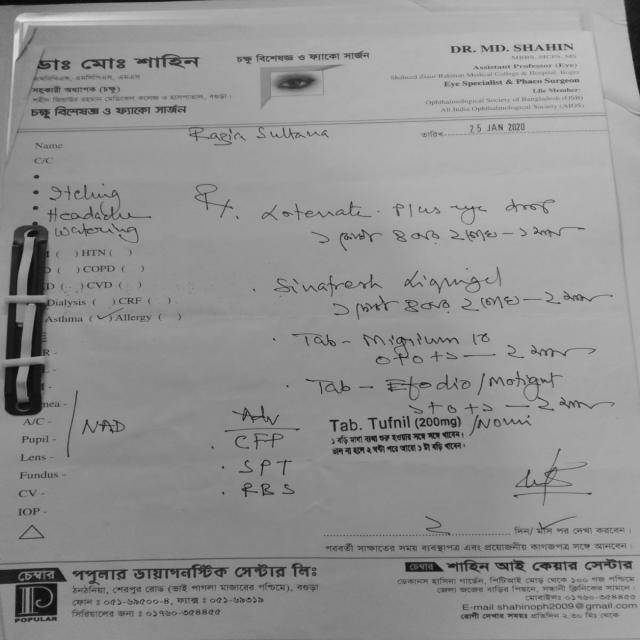 ডাঃ মোঃ শাহিন
এমবিবিএস, এমসিপিএস, এমএস
সহকারী অধ্যাপক (চক্ষু)
শহীদ জিয়াউর রহমান মেডিকেল কলেজ ও হাসপাতাল, বগুড়া।
চক্ষু বিশেষজ্ঞ ও ফ্যাকো সার্জন
চক্ষু বিশেষজ্ঞ ও ফ্যাকো সার্জন
DR. MD. SHAHIN
MBBS, MCPS, MS
Assistant Professor (Eye)
Shaheed Ziaur Rahman Medical College & Hospital, Bogra
Eye Specialist & Phaco Surgeon
Life Member:
Ophthalmological Society of Bangladesh (OSB)
All India Ophthalmological Society (AIOS)
Name Razia Sultana
তারিখ 25 JAN 2020
C/C
• Itching
• Headache
• Watering
( ) HTN ( )
( ) COPD ( )
( ) CVD ( )
Dialysis ( ) CRF ( )
Asthma (✓) Allergy ( )
A/C -
Pupil -
Lens -
Fundus -
CV -
IOP -
△
NAD
Rx. Lotenate Plus eye drop
১ ফোটা ৪ বার ২ চোখে - ১ মাস
Sinafresh Liquigel
১ ফোটা ৪ বার ২ চোখে - ২ মাস
Tab - Migrium 10
০+০+১ — ২ মাস
Tab - Efodio/Motigut
১+০+১ - ২ মাস
Tab. Tufnil (200mg) /Nomi
১ বড়ি মাথা ব্যথা শুরু হওয়ার সঙ্গে সঙ্গে খাবেন।
ভাল না হলে ২ ঘন্টা পরে আরো ১ টা বড়ি খাবেন।
Adv
. CFP
. SPT
. RBS
২ দিন/ মাস পর দেখা করবেন।
পরবর্তী সাক্ষাতের সময় ব্যবস্থাপত্র এবং প্রয়োজনীয় কাগজপত্র সঙ্গে আনবেন।
চেম্বার পপুলার ডায়াগনস্টিক সেন্টার লিঃ
POPULAR
ঠনঠনিয়া, শেরপুর রোড (ভাই পাগলা মাজারের পশ্চিমে), বগুড়া
ফোন : ০৫১-৬৯৫০০-৪, ফ্যাক্স : ০৫১-৬৯৩১৯
সিরিয়ালের জন্য : ০১৭৬০-৩৫৪৪৫৫
চেম্বার শাহিন আই কেয়ার সেন্টার
ডেকানস হাসিনা গার্ডেন, পিটিআই মোড় থেকে ১০০ গজ পশ্চিমে
জেলা জজের বাড়ির পিছনে, সন্ধানী ক্লিনিকের সামনে।
মোবাইলঃ ০১৭৬০-৩৫৪৪৫৫
E-mail shahinoph2009@gmail.com
রোগী দেখার সময়ঃ প্রতিদিন ২.৩০ মিঃ থেকে